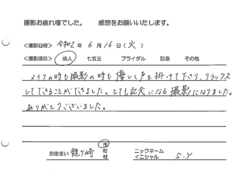 撮影お疲れ様でした。　感想をお願いいたします。
<撮影日時>　令和2年6月16日(火)
<撮影項目>　成人　七五三　ブライダル　記念　その他
メイクの時も撮影の時も優しく声を掛けて下さり、リラックス
してできることができました。とても記念になる撮影になりました。
ありがとうございました。
お住まい　鶴ヶ崎　市　町　村　ニックネーム　イニシャル　S.Y